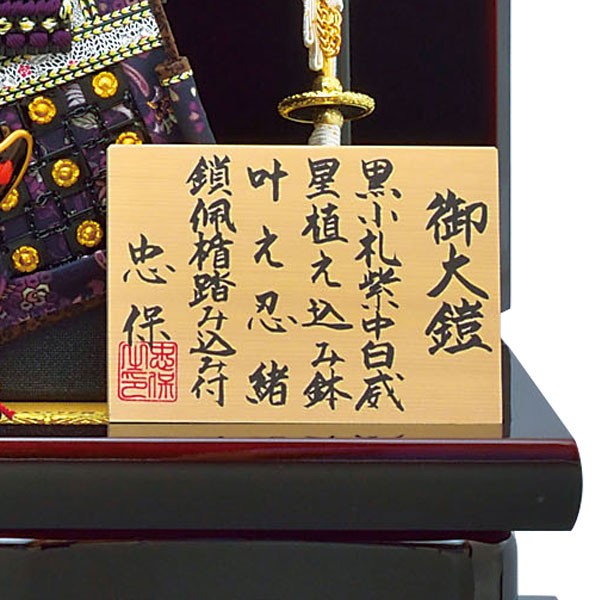 御大鎧
黒小札紫中白威
星植え込み鉢
叶え忍緒
鎖佩楯踏み込み付
忠保
忠保之印